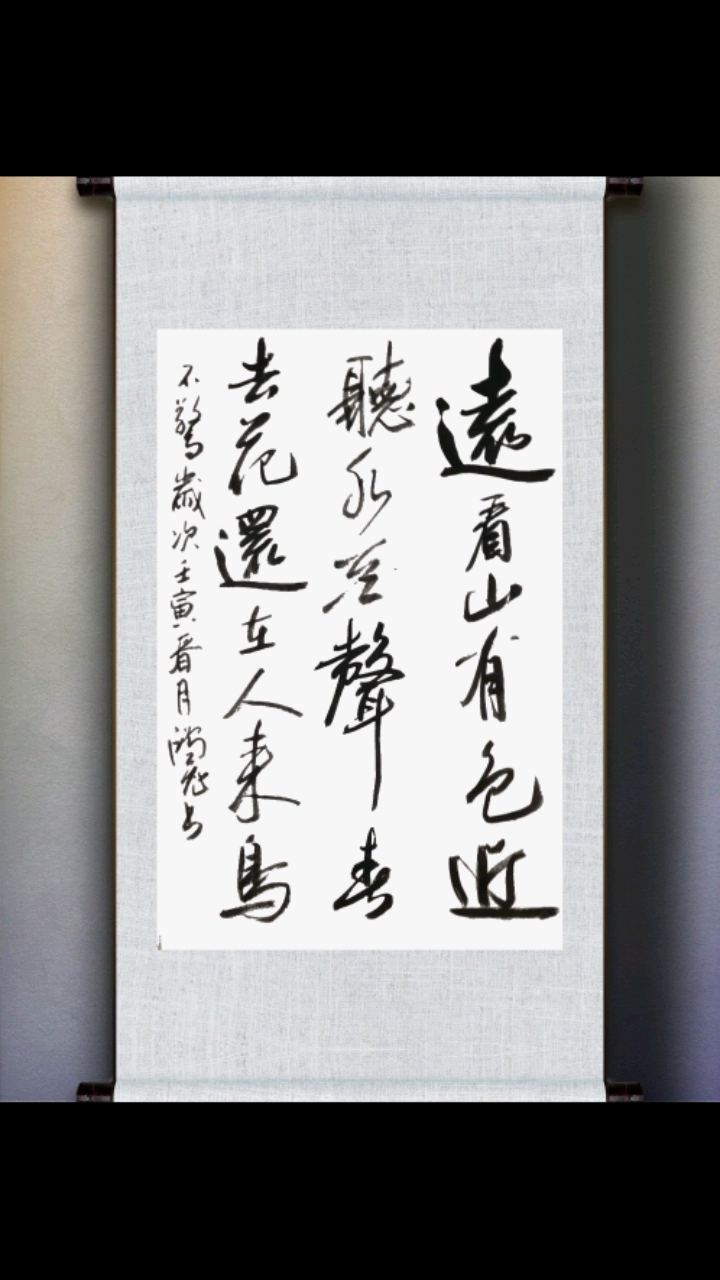 遠看山有色近
聽水無聲春
去花還在人来鳥
不驚歲次壬寅春月书